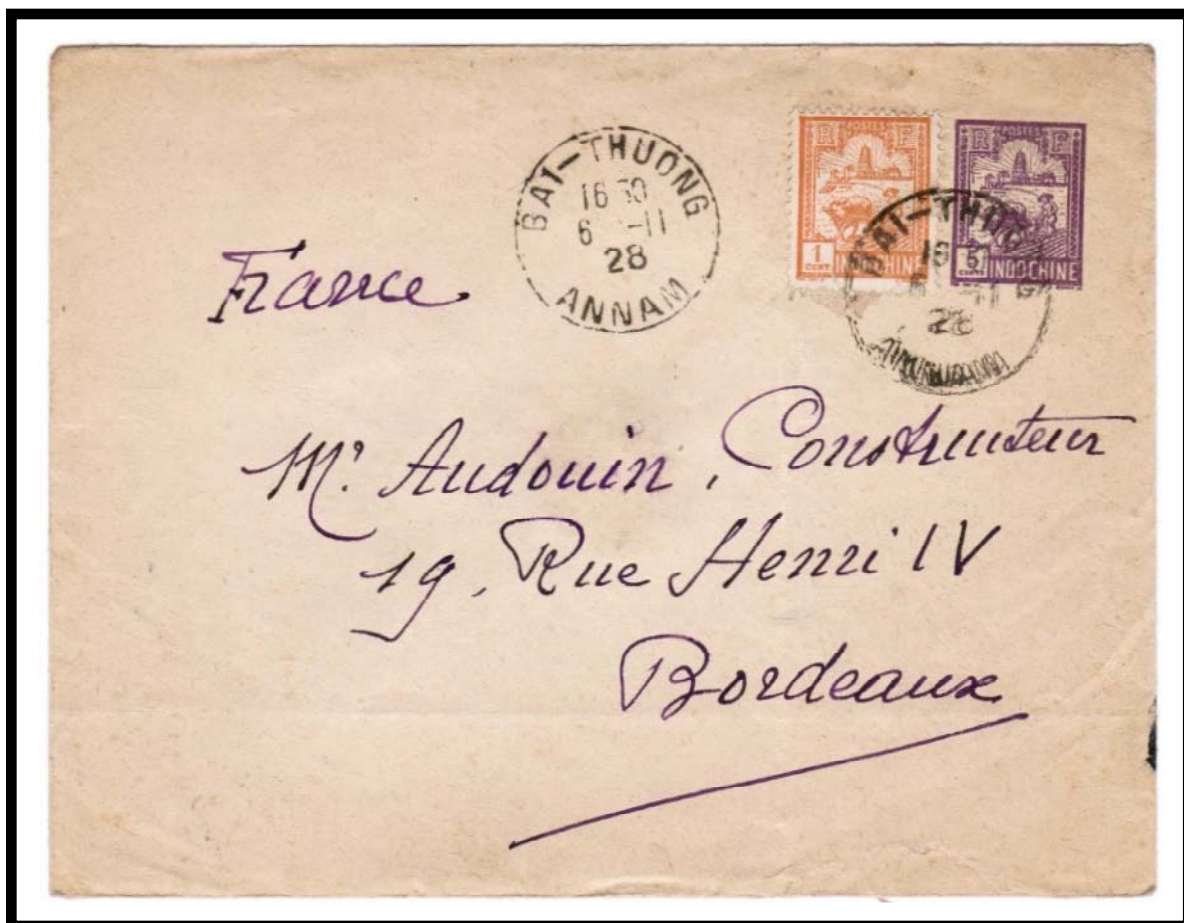 BAI-THUONG
16 30
6 -11
28
ANNAM
R POSTES F
1
CENT INDOCHINE
R POSTES F
5
INDOCHINE
BAI-THUO
16
-11
28
France
Mr. Audouin, Constructeur
19, Rue Henri IV
Bordeaux